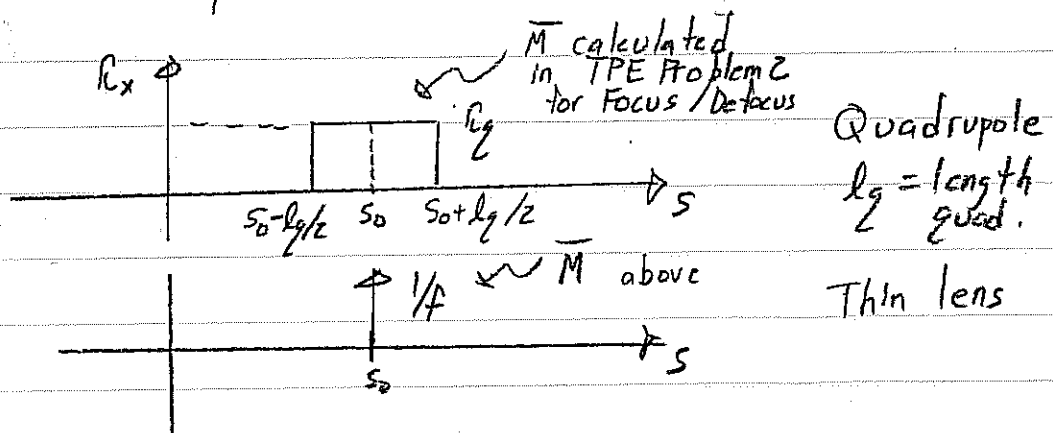 M̄ calculated
in TPE Problem 2
for Focus/Defocus
κx
κq
Quadrupole
lq = length
quad.
s0-lq/2 s0 s0+lq/2 s
1/f M̄ above
Thin lens
s0 s